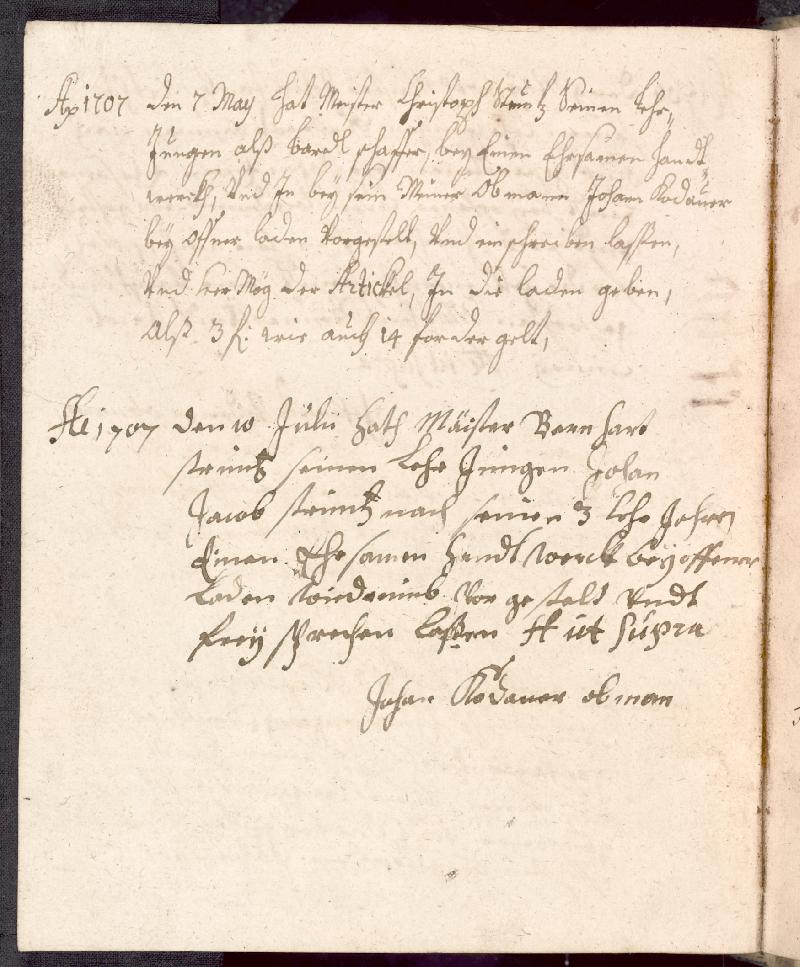 Ao 1707 den 7 May hat Meister Christoph Steintz Seinen lehr„
Jungen alß bardl schaffer, bey Einen Ehrsamen handt„
werckh, Vnd In bey sein Meiner Obmann Johann Kodauer
bey offner laden Vorgestelt, Vnd ein schreiben lassen,
Vnd der Artickel, In die laden geben,
Alß 3 f: wie auch 14 forder gelt,
Ao 1707 den 10 Julii hath Maister Bernhart
seinen lehr Jungen Johan
Jacob nach seinen 3 lehr Jahren
Einen Ehrsamen handtwerck bey offener
Laden wiederumb Vor gestelt Vndt
freÿ sprechen laßen A ut supra
Johan Kodauer obman